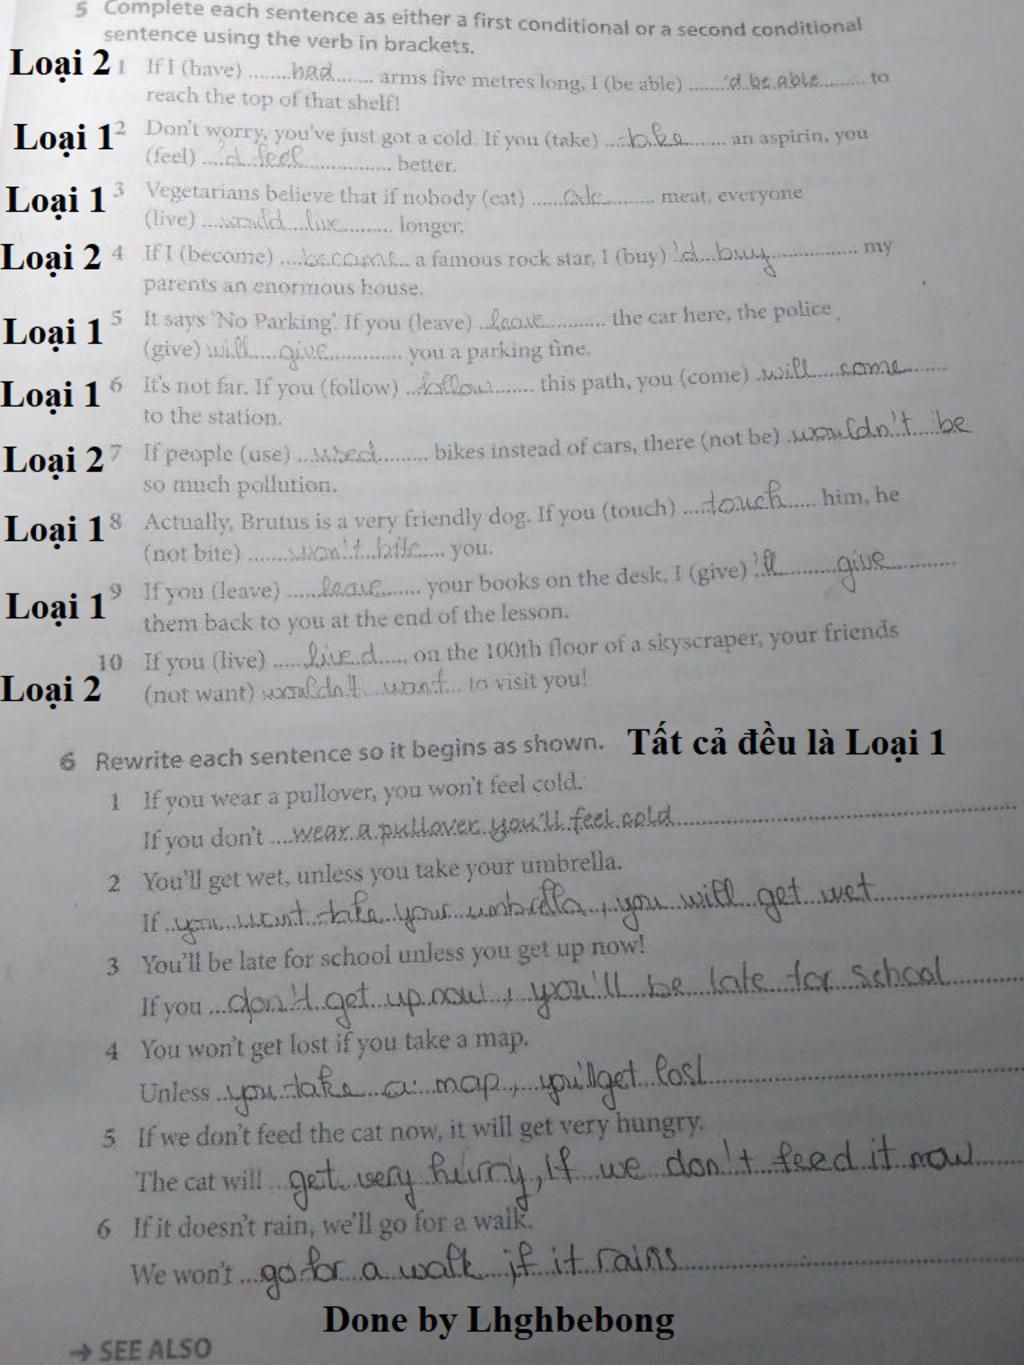 5 Complete each sentence as either a first conditional or a second conditional
sentence using the verb in brackets.
Loại 2 1 If I (have) ........had........ arms five metres long, I (be able) ........'d be able........ to
reach the top of that shelf!
Loại 1 2 Don't worry, you've just got a cold. If you (take) ....take........ an aspirin, you
(feel) ....'d feel............ better.
Loại 1 3 Vegetarians believe that if nobody (eat) ......ate........ meat, everyone
(live) ....would live........ longer.
Loại 2 4 If I (become) ....became.... a famous rock star, I (buy) 'd buy............ my
parents an enormous house.
Loại 1 5 It says 'No Parking'. If you (leave) ..leave.......... the car here, the police
(give) will give............ you a parking fine.
Loại 1 6 It's not far. If you (follow) ..follow........ this path, you (come) will come........
to the station.
Loại 2 7 If people (use) ....used........ bikes instead of cars, there (not be) wouldn't be
so much pollution.
Loại 1 8 Actually, Brutus is a very friendly dog. If you (touch) ....touch...... him, he
(not bite) ........won't bite.... you.
Loại 1 9 If you (leave) ......leave...... your books on the desk, I (give) 'll give............
them back to you at the end of the lesson.
10 If you (live) ......lived...... on the 100th floor of a skyscraper, your friends
Loại 2 (not want) wouldn't want... to visit you!
6 Rewrite each sentence so it begins as shown. Tất cả đều là Loại 1
1 If you wear a pullover, you won't feel cold.
If you don't ...wear a pullover you'll feel cold............
2 You'll get wet, unless you take your umbrella.
If ..you take your umbrella, you will get wet............
3 You'll be late for school unless you get up now!
If you ...don't get up now, you'll be late for school........
4 You won't get lost if you take a map.
Unless ..you take a map, you'll get lost............
5 If we don't feed the cat now, it will get very hungry.
The cat will ...get very hurry, If we don't feed it now........
6 If it doesn't rain, we'll go for a walk.
We won't ...go for a walk if it rains............
Done by Lhghbebong
→ SEE ALSO